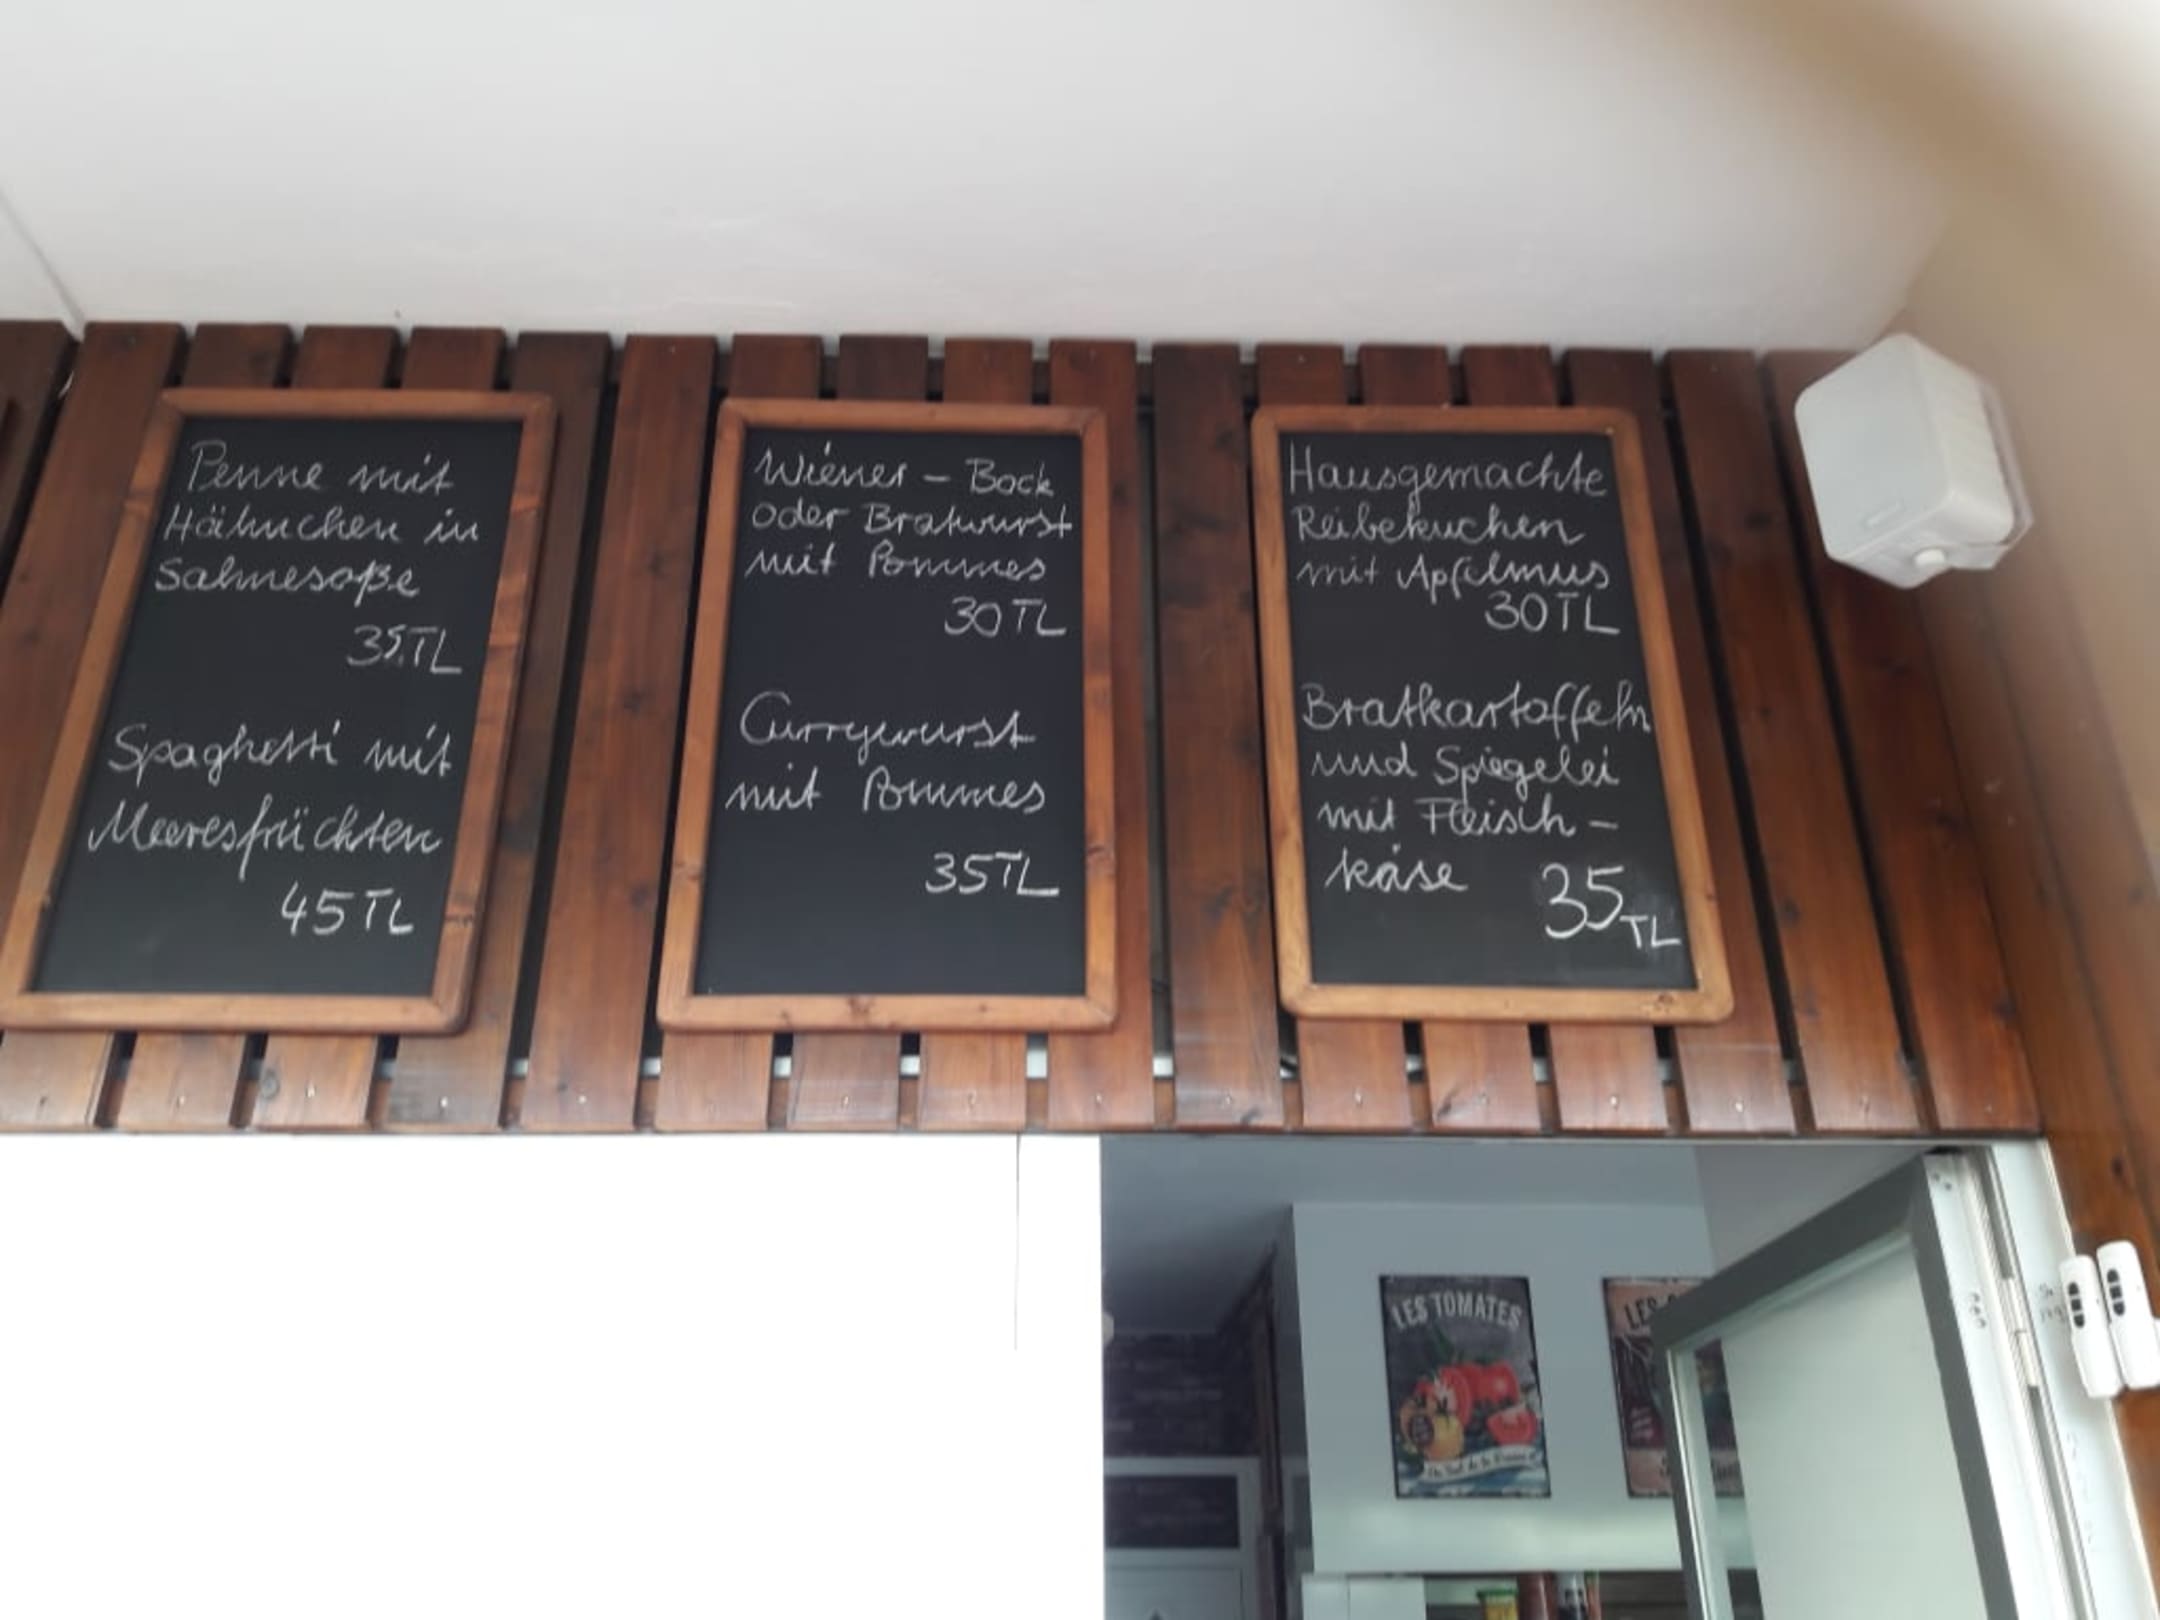 Penne mit
Hähnchen in
Sahnesoße
35TL
Spaghetti mit
Meeresfrüchten
45TL
Wiener – Bock
oder Bratwurst
mit Pommes
30TL
Currywurst
mit Pommes
35TL
Hausgemachte
Reibekuchen
mit Apfelmus
30TL
Bratkartoffeln
und Spiegelei
mit Fleisch–
käse 35TL
LES TOMATES
LES